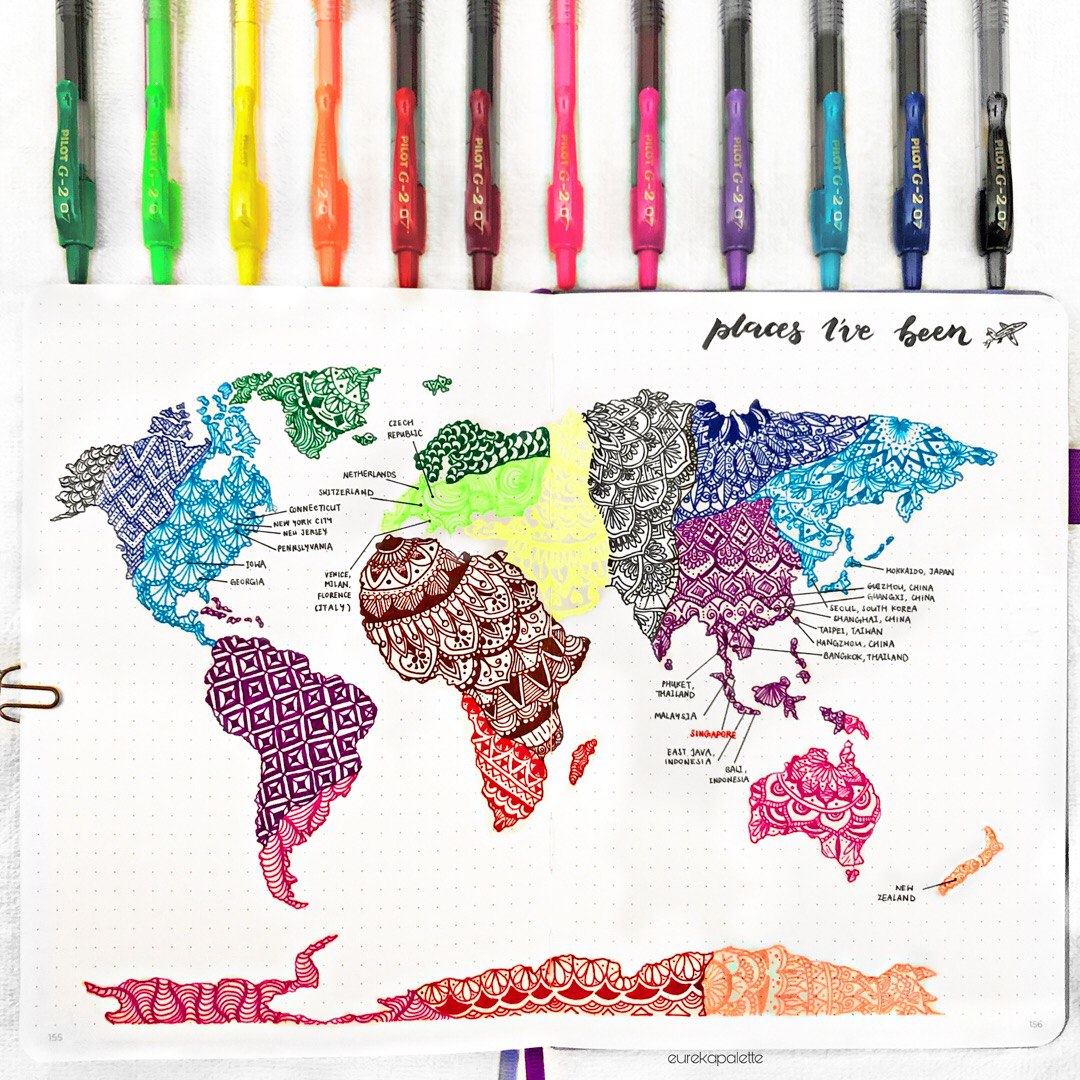 PILOT G-2 07
PILOT G-2 07
PILOT G-2 07
PILOT G-2 07
PILOT G-2 07
PILOT G-2 07
PILOT G-2 07
PILOT G-2 07
PILOT G-2 07
PILOT G-2 07
places I've been
CZECH
REPUBLIC
NETHERLANDS
SWITZERLAND
CONNECTICUT
NEW YORK CITY
NEW JERSEY
PENNSLYVANIA
IOWA
GEORGIA
VENICE,
MILAN,
FLORENCE
(ITALY)
HOKKAIDO, JAPAN
GUIZHOU, CHINA
GUANGXI, CHINA
SEOUL, SOUTH KOREA
SHANGHAI, CHINA
TAIPEI, TAIWAN
HANGZHOU, CHINA
BANGKOK, THAILAND
PHUKET,
THAILAND
MALAYSIA
SINGAPORE
EAST JAVA,
INDONESIA
BALI,
INDONESIA
NEW
ZEALAND
155
156
eurekapalette